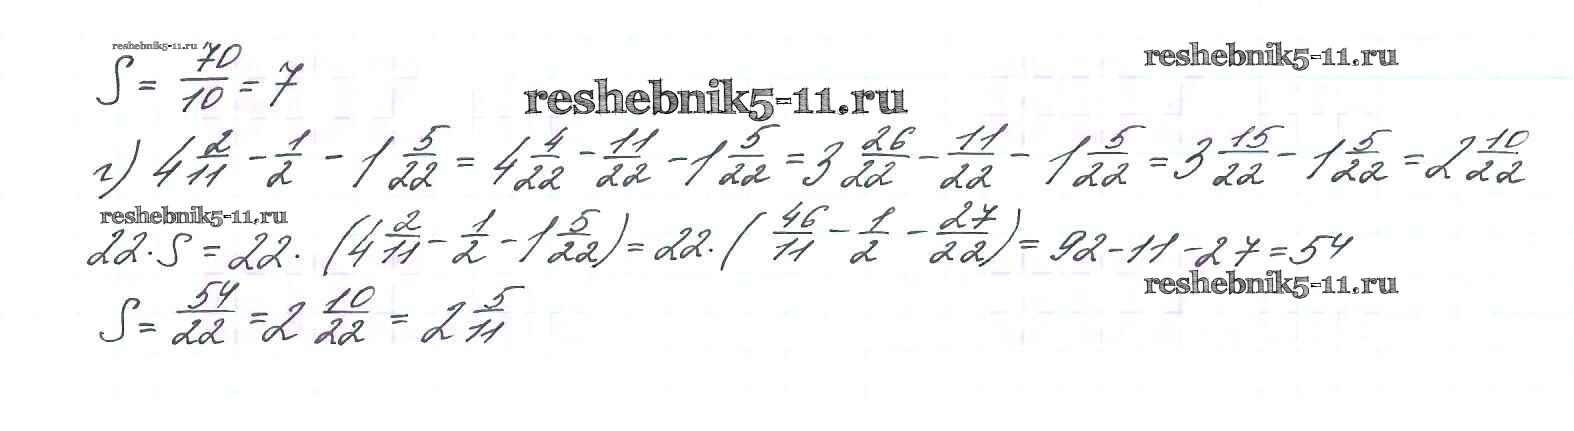 reshebnik5-11.ru
reshebnik5-11.ru
S = 70/10 = 7
reshebnik5-11.ru
г) 4 2/11 - 1/2 - 1 5/22 = 4 4/22 - 11/22 - 1 5/22 = 3 26/22 - 11/22 - 1 5/22 = 3 15/22 - 1 5/22 = 2 10/22
reshebnik5-11.ru
22·S = 22·(4 2/11 - 1/2 - 1 5/22) = 22·(46/11 - 1/2 - 27/22) = 92 - 11 - 27 = 54
reshebnik5-11.ru
S = 54/22 = 2 10/22 = 2 5/11